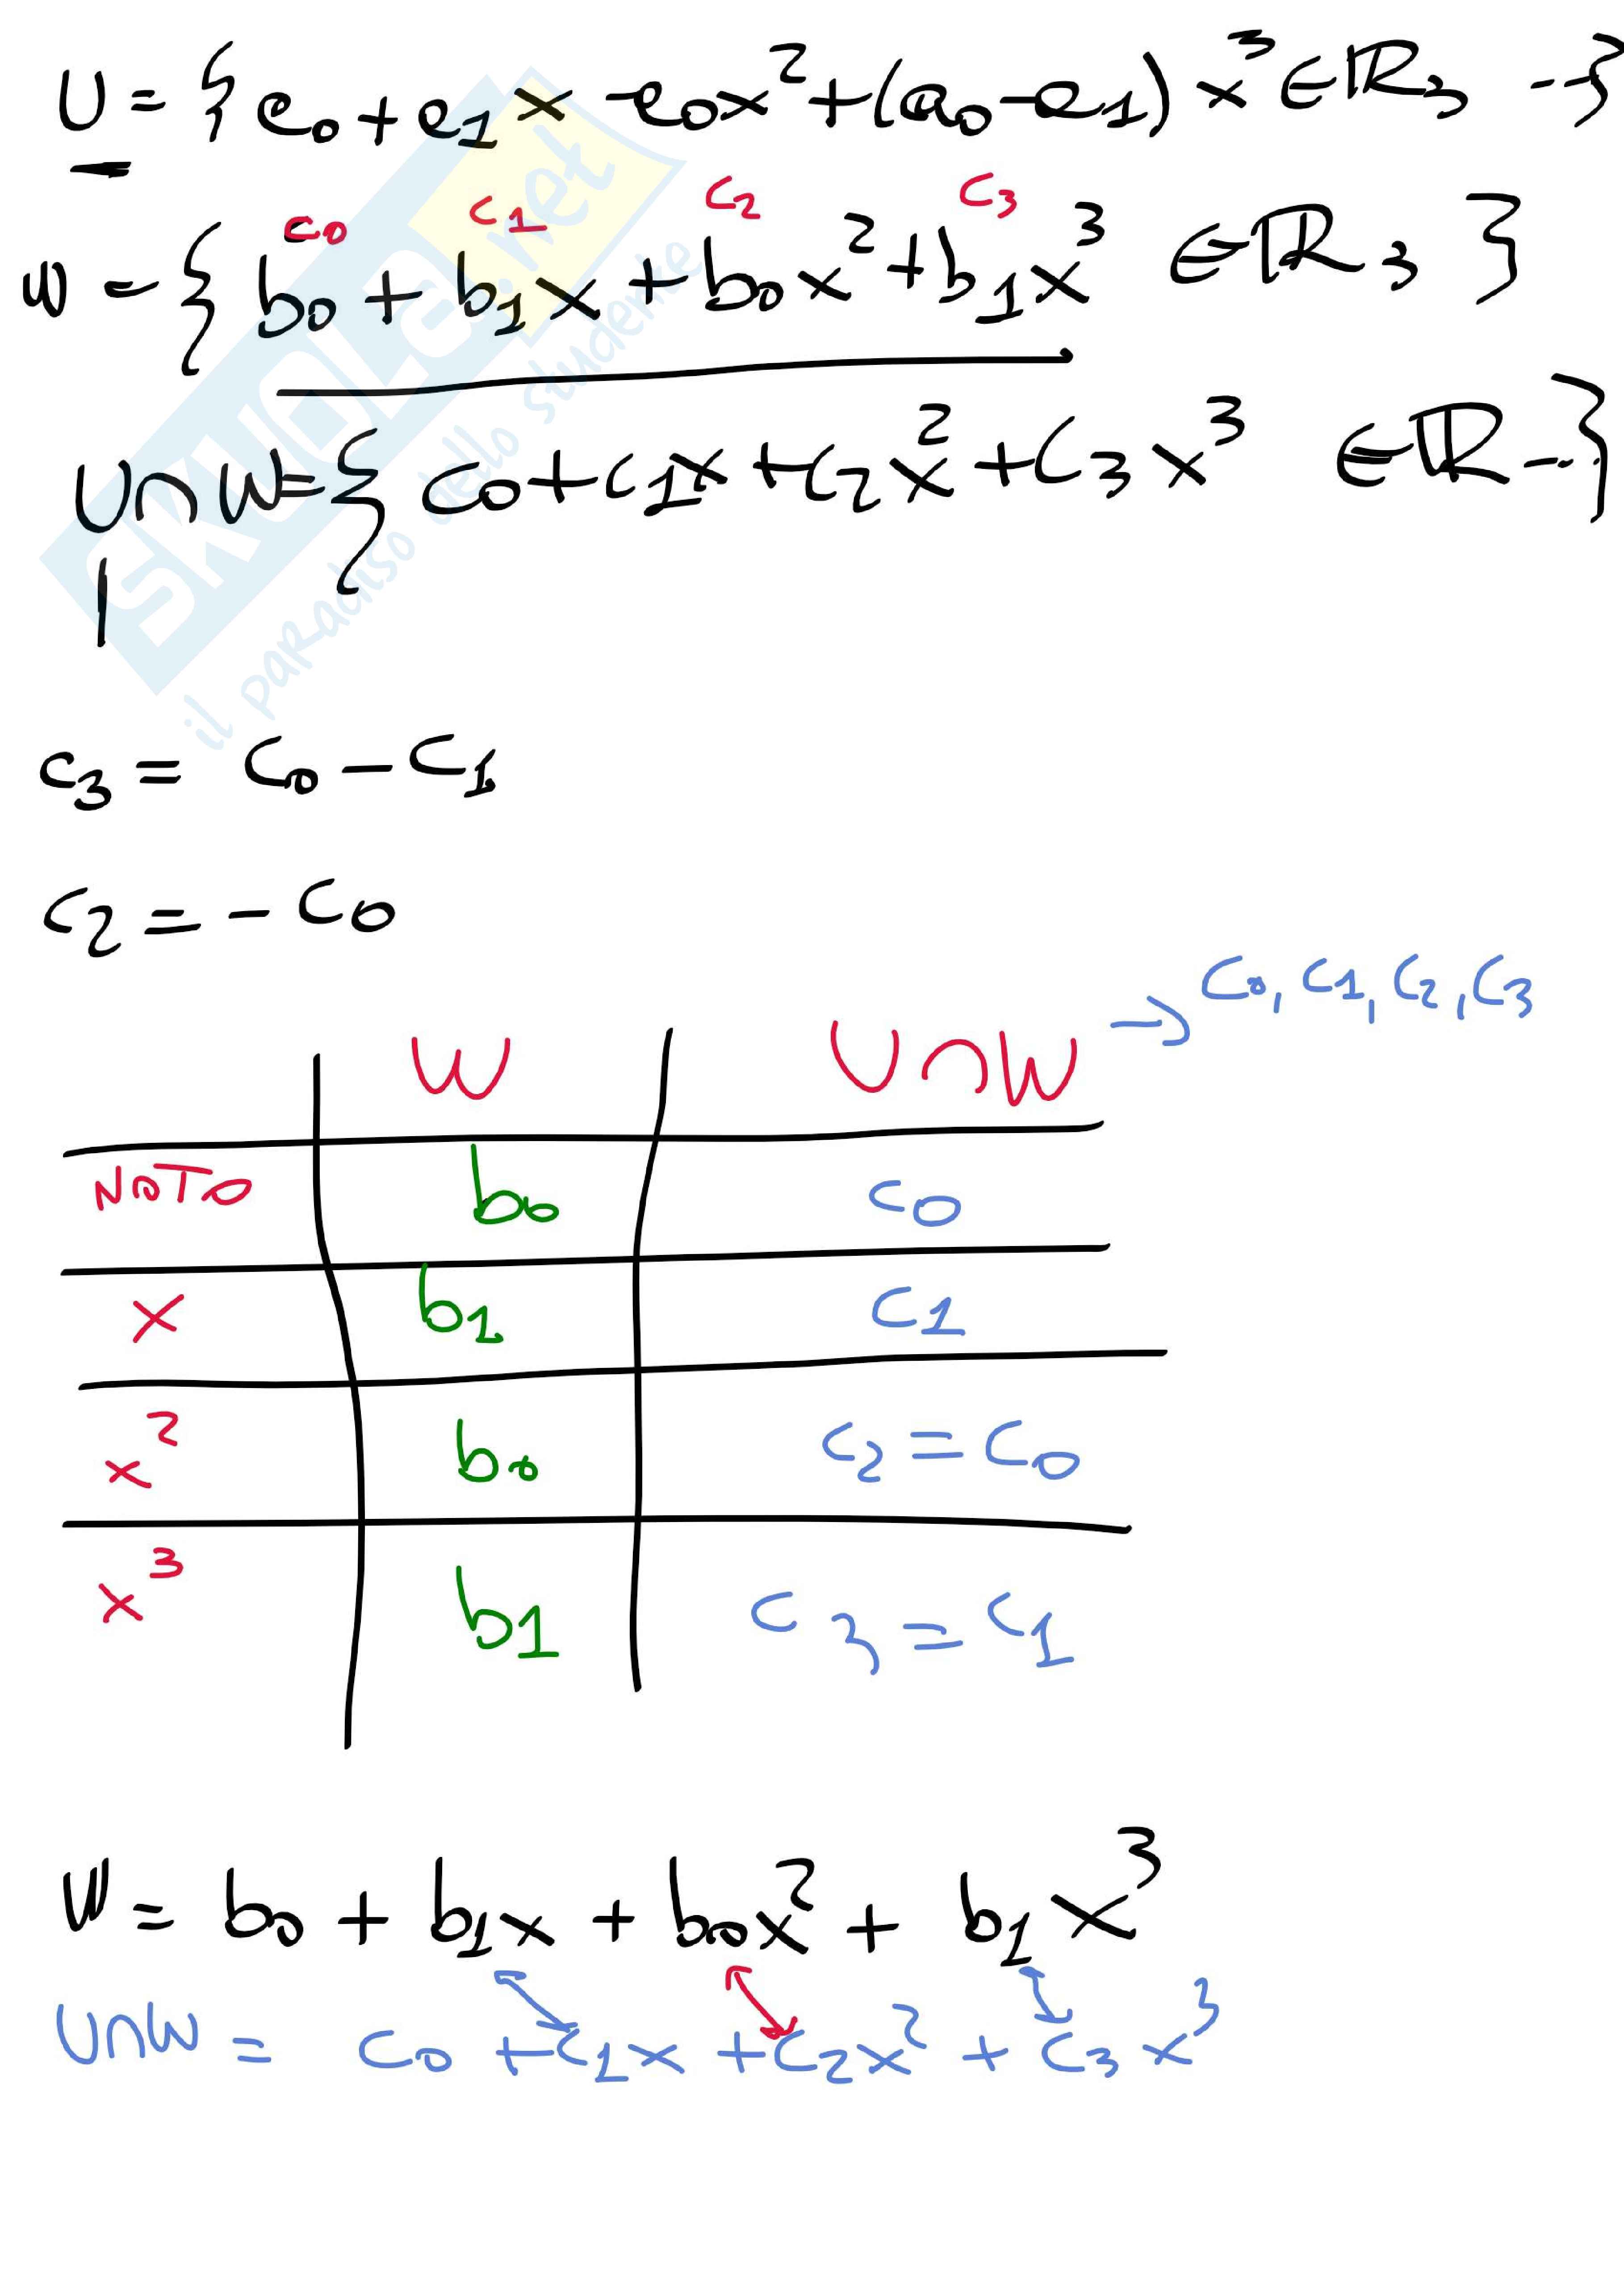 U = { a₀ + a₁x - a₀x² + (a₀ - a₁) x³ ∈ ℝ₃ -- }
c₀ c₁ c₂ c₃
W = { b₀ + b₁x + b₀x² + b₁x³ ∈ ℝ₃ }
U∩W = { c₀ + c₁x + c₂x² + c₃x³ ∈ ℝ -- }
c₃ = c₀ - c₁
c₂ = - c₀
→ c₀, c₁, c₂, c₃
W U∩W
NOTO b₀ c₀
x b₁ c₁
x² b₀ c₂ = c₀
x³ b₁ c₃ = c₁
W = b₀ + b₁x + b₀x² + b₁x³
U∩W = c₀ + c₁x + c₂x² + c₃x³
SKUOLA.net
il paradiso dello studente